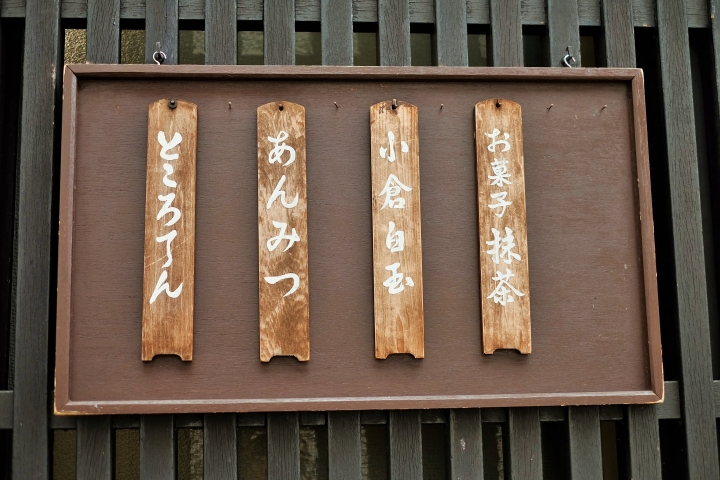 お菓子 抹茶
小倉白玉
あんみつ
ところてん